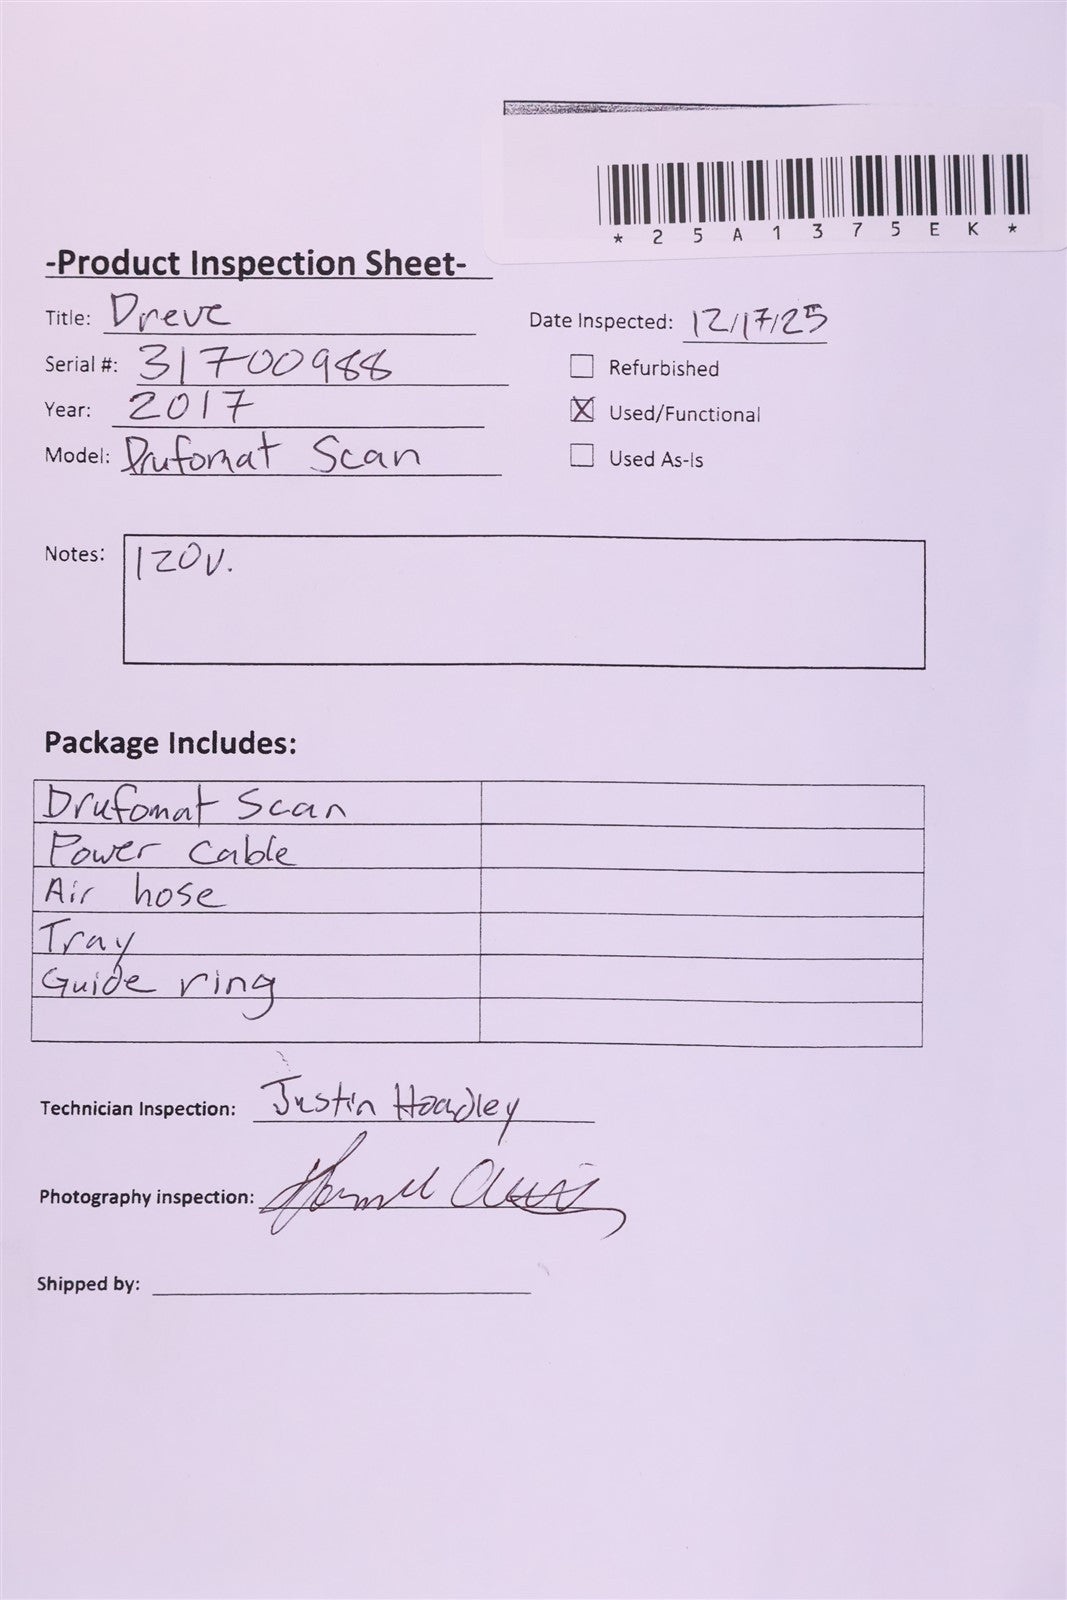 *25A1375EK*
-Product Inspection Sheet-
Title: Dreve
Date Inspected: 12/17/25
Serial #: 31700988
Refurbished
Year: 2017
Used/Functional
Model: Drufomat Scan
Used As-Is
Notes: 120V.
Package Includes:
Drufomat Scan
Power cable
Air hose
Tray
Guide ring
Technician Inspection: Justin Hoadley
Photography inspection:
Shipped by: